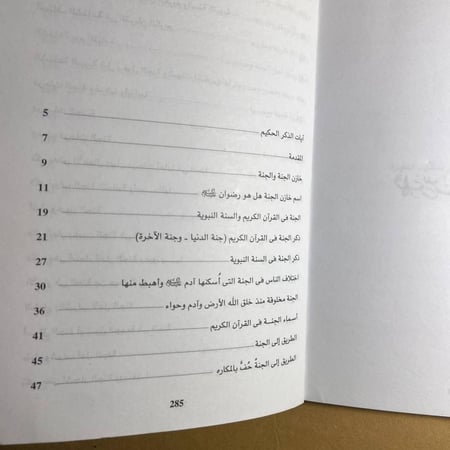 آيات الذكر الحكيم 5
المقدمة 7
خازن الجنة والجنة 9
اسم خازن الجنة هل هو رضوان ﷺ 11
الجنة فى القرآن الكريم والسنة النبوية 19
ذكر الجنة فى القرآن الكريم (جنة الدنيا - وجنة الآخرة) 21
ذكر الجنة فى السنة النبوية 27
اختلاف الناس فى الجنة التى أسكنها آدم ﷺ وأهبط منها 30
الجنة مخلوقة منذ خلق الله الأرض وآدم وحواء 36
أسماء الجنة فى القرآن الكريم 41
الطريق إلى الجنة 45
الطريق إلى الجنةُ حُفَّ بالمكاره 47
285